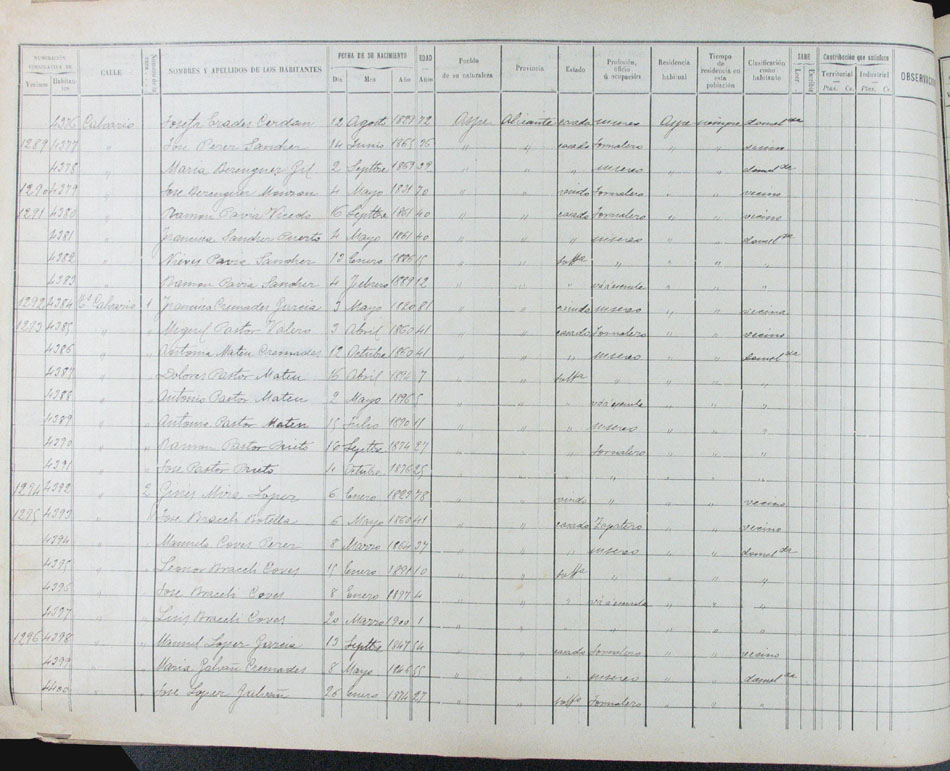 NUMERACIÓN CORRELATIVA DE
Vecinos Habitantes CALLE NOMBRES Y APELLIDOS DE LOS HABITANTES FECHA DE SU NACIMIENTO Día Mes Año EDAD Años Pueblo de su naturaleza Provincia Estado Profesión, oficio ú ocupación Residencia habitual Tiempo de residencia en esta población Clasificación como habitante SABE Leer Escribir Contribución que satisface Territorial Ptas. Cs. Industrial Ptas. Cs. OBSERVACI
4376 Calvario Josefa Erades Cerdan 12 Agosto 1829 72 Aspe Alicante casada sus labores Aspe siempre
1289 4377 " Jose Perez Sanchez 14 Junio 1865 36 " " casado Jornalero " " vecino
4378 " Maria Berenguer Gil 2 Septbre " " " " "
1290 4379 " Jose Berenguer 4 Mayo 1831 70 " " viudo Jornalero " " vecino
1291 4380 " Ramon Pavia Vicedo 16 Septbre 1861 40 " " casado Jornalero " " vecino
4381 " Francisca Sanchez 4 Mayo 1861 40 " " " " "
4382 " Nieves Pavia Sanchez 13 Enero 1886 15 " " " " " "
4383 " Ramon Pavia Sanchez 4 Febrero 1889 12 " " " " " "
1292 4384 Calvario 1 Francisca Cremades Garcia 3 Mayo 1820 81 " " viuda " " vecina
1293 4385 " " Miguel Pastor Valero 3 Abril 1860 41 " " casado Jornalero " " vecino
4386 " " Antonia Mateu Cremades 12 Octubre 1860 41 " " " " "
4387 " " Dolores Pastor Mateu 16 Abril 1894 7 " " " " " "
4388 " " Antonio Pastor Mateu 2 Mayo 1896 5 " " " " " "
4389 " " Antonia Pastor Mateu 15 Julio 1890 11 " " " " " "
4390 " " Ramon Pastor Prieto 16 Septbre 1874 27 " " " Jornalero " " "
4391 " " Jose Pastor Prieto 4 Octubre 1876 25 " " " " " " "
1294 4392 " 2 Gines Mira Lopez 6 Enero 1823 78 " " viudo " " " vecino
1295 4393 " Jose Botella 6 Mayo 1860 41 " " casado Zapatero " " vecino
4394 " " Manuela Coves Perez 8 Marzo 1864 37 " " " " "
4395 " " Leonor Coves 15 Enero 1891 10 " " " " " "
4396 " " Jose Coves 8 Enero 1897 4 " " " " " "
4397 " " Luis Coves 20 Marzo 1900 1 " " " " " " "
1296 4398 " " Manuel Lopez Garcia 13 Septbre 1847 54 " " casado Jornalero " " vecino
4399 " " Maria Galvañ Cremades 8 Mayo 1846 55 " " " " "
4400 " " Jose Lopez Galvañ 26 Enero 1874 27 " " Jornalero " " "